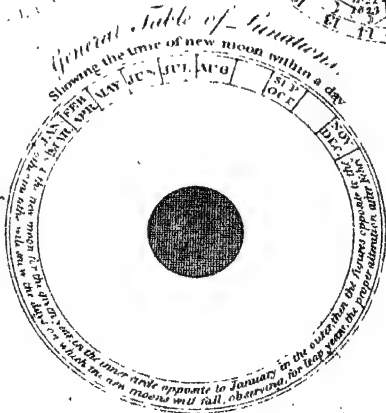 General Table of Lunations.
Shewing the time of new moon within a day
JAN FEB MAY JUN JUL AUG SEP NOV
MAR APR OCT DEC
the new moon for this year in the inner circle opposite to January in the outer, then the figures opposite to the
other months will shew the days on which the new moons will fall, observing, for leap years, the proper alteration after